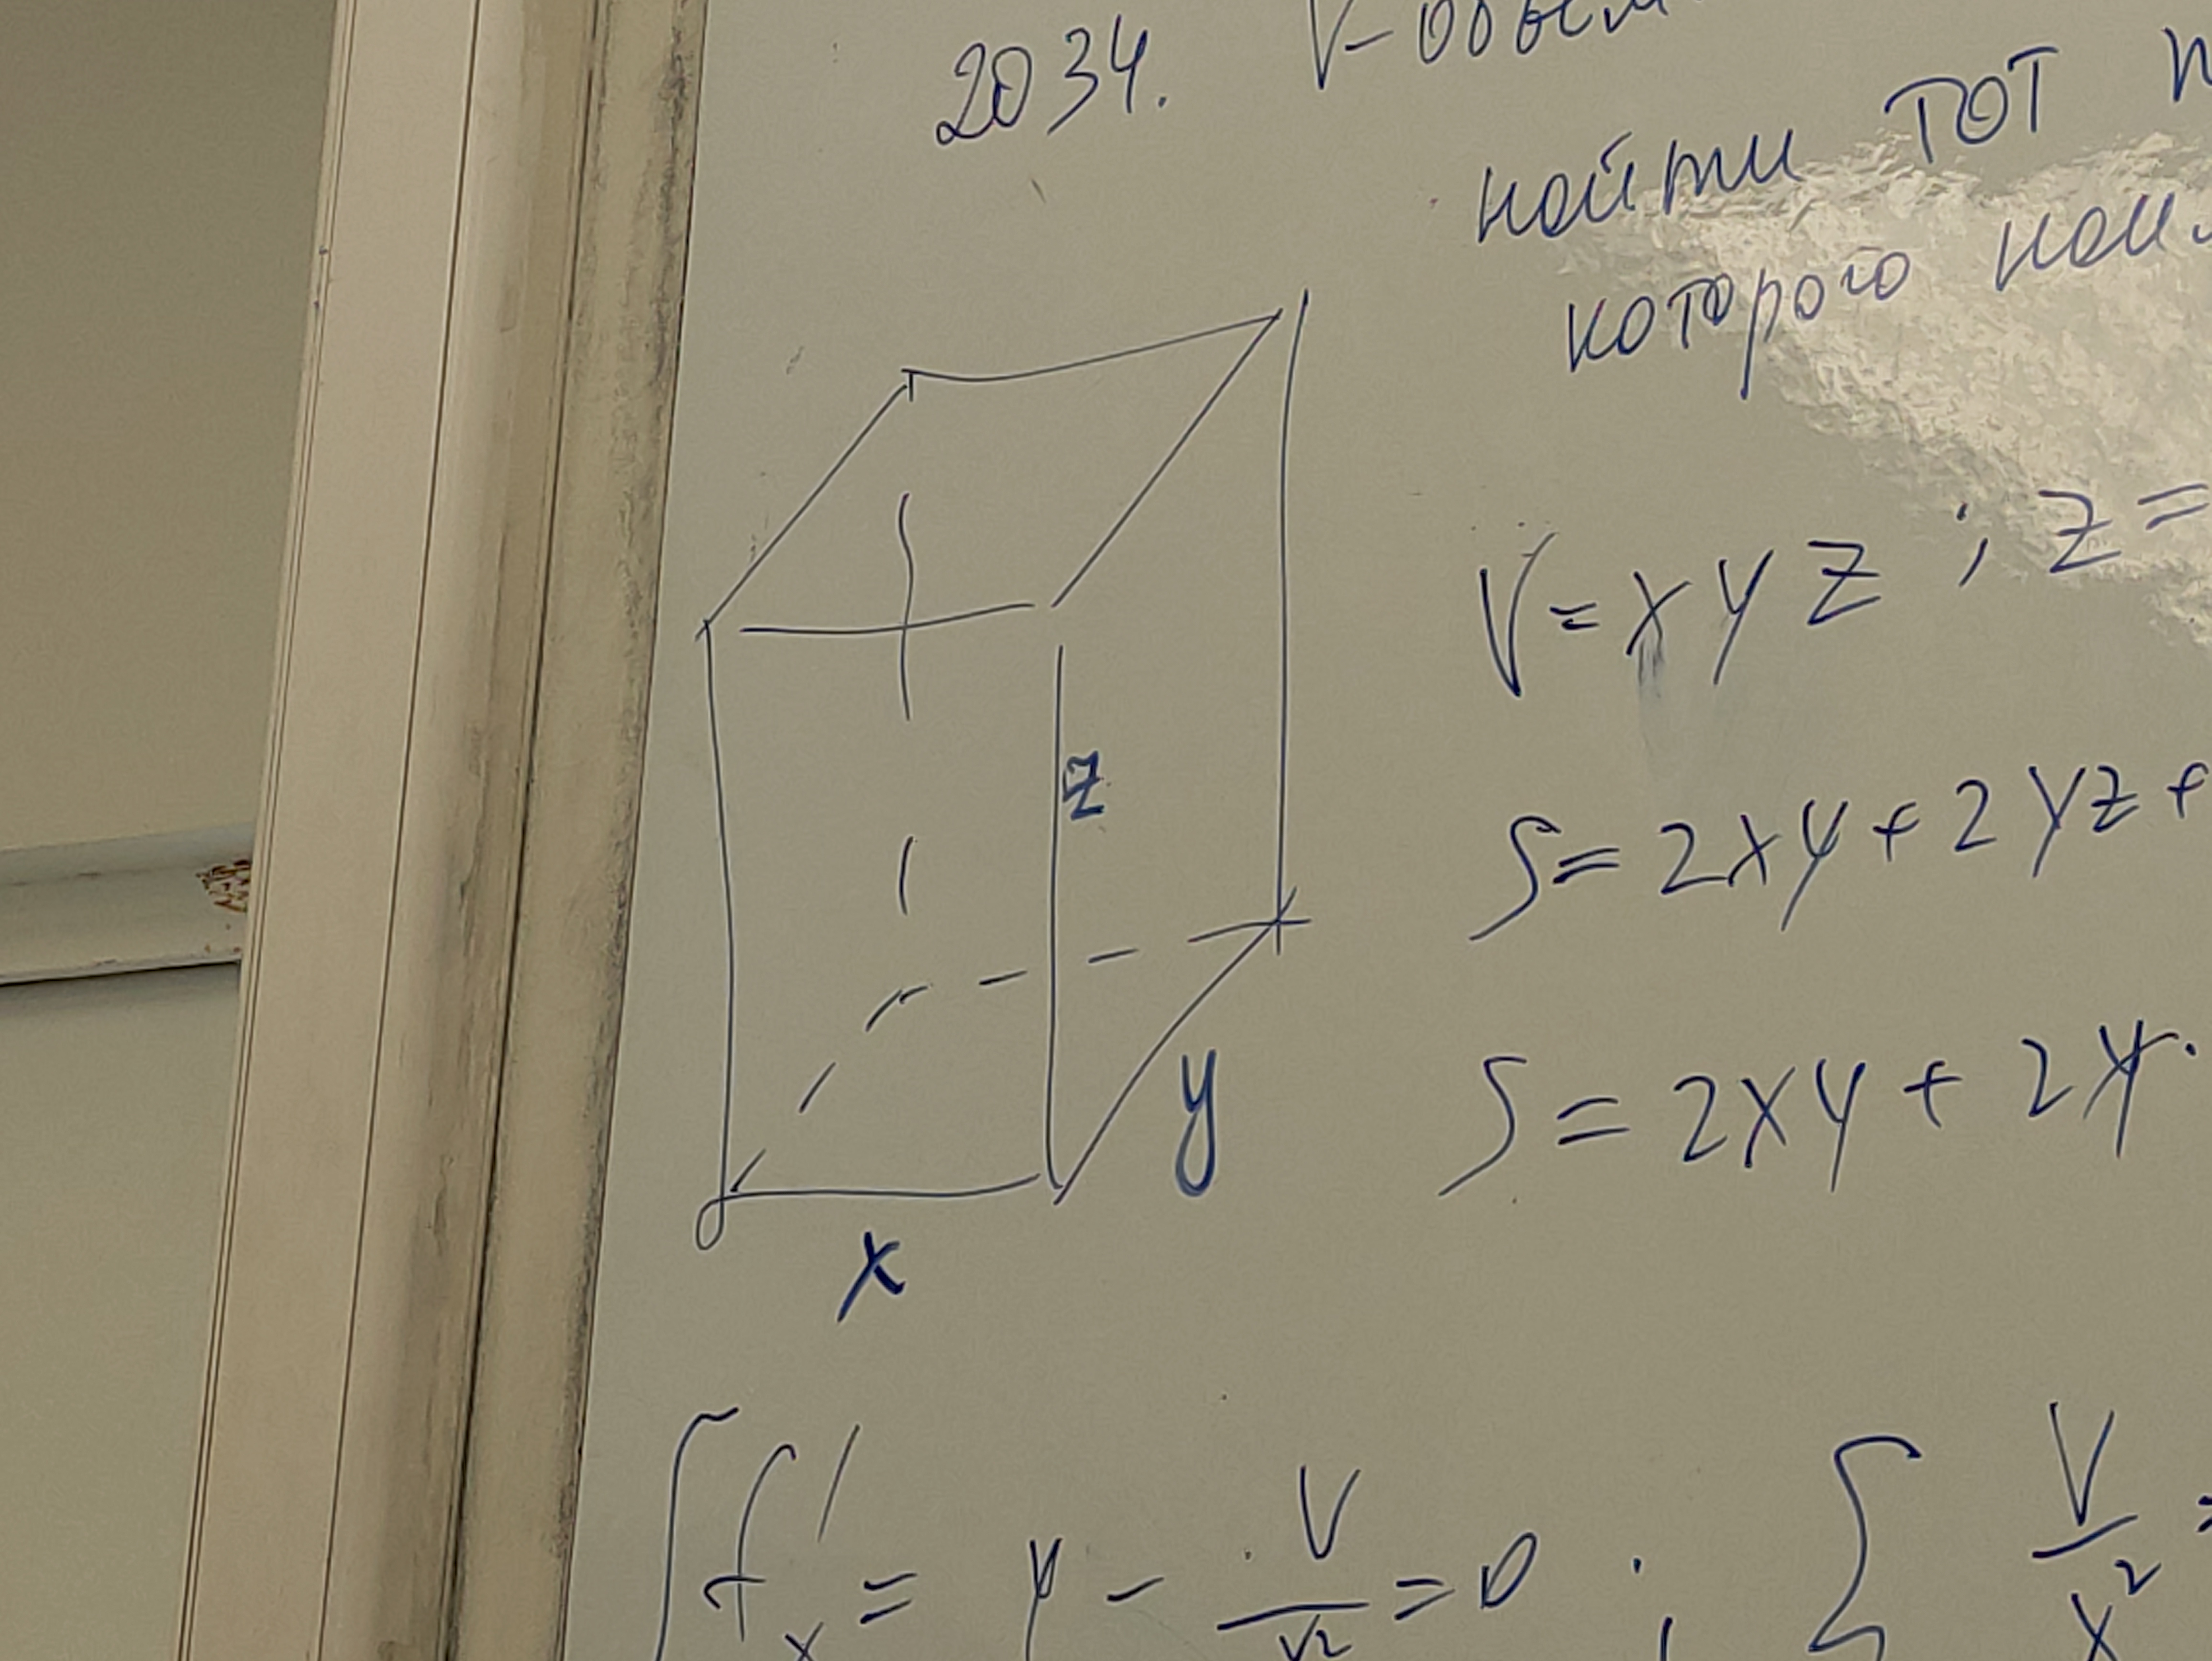 2034. V - объем
найти тот
которого
V = x y z ; z =
S = 2xy + 2yz +
S = 2xy + 2y.
z
y
x
f'x = y - V/x² = 0 ; { V/x² =